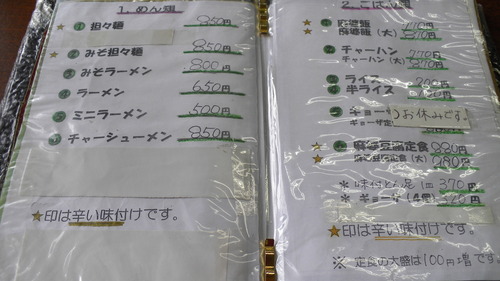 1. めん類
★ ① 担々麺 850円
★ ② みそ担々麺 850円
③ みそラーメン 800円
④ ラーメン 650円
⑤ ミニラーメン 500円
⑥ チャーシューメン 850円
★印は辛い味付けです。
2. ごはん類
麻婆飯 770円
麻婆飯(大) 870円
チャーハン 770円
チャーハン(大) 870円
ライス 200円
半ライス
ギョーザ
お休みです。
ギョーザ定
★ 麻婆豆腐定食 880円
★ 麻婆豆腐定食(大) 980円
* 味付とん足 1皿 370円
* ギョーザ(4個)
★印は辛い味付けです。
※ 定食の大盛は100円増です。